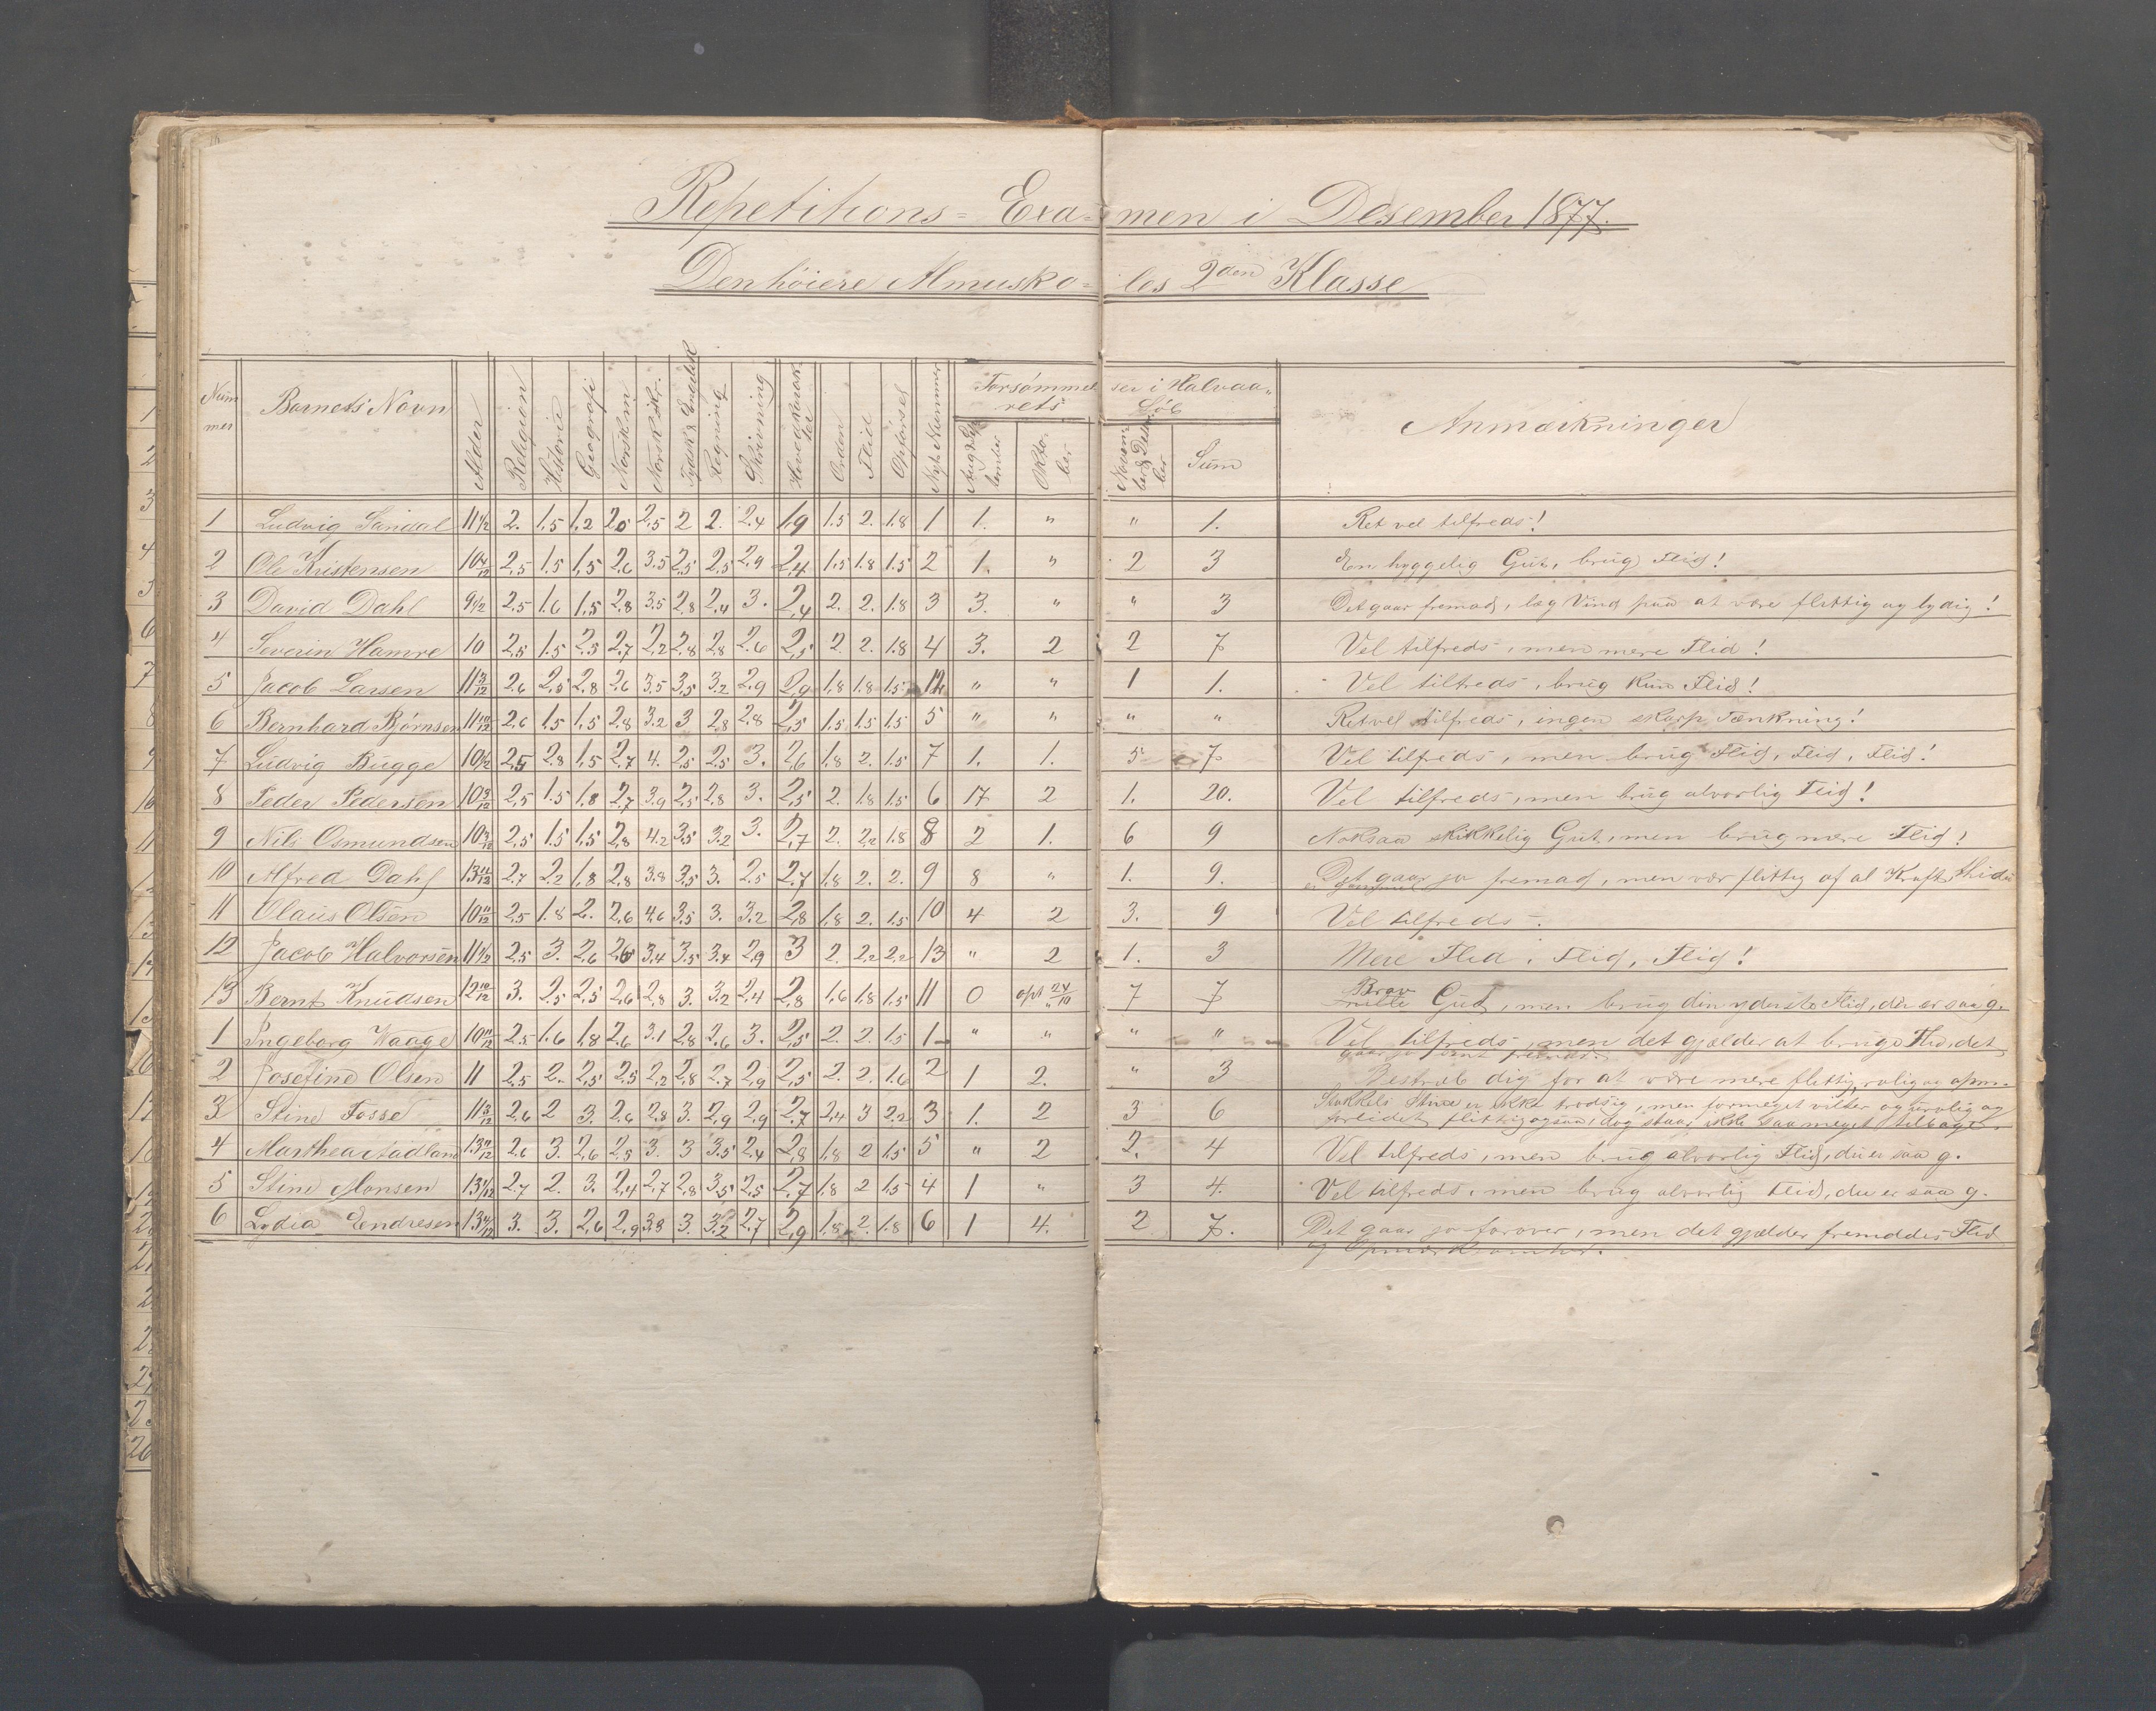 Repetitions-Examen i Desember 1877.
Den høiere Almuskoles 2den Klasse
Nummer Barnets Navn Alder Religion Historie Geografi Norsk m. Norsk skr. Tydsk & Engelsk Regning Skrivning Hovedkarakter Orden Flid Opførsel Nyt Nummer Forsømmelser i Halvaarets Løb Aug & September Oktober November & Desember Sum Anmærkninger
1 Ludvig Sandal 11 1/2 2. 1.5 1,2 2,0 2,5 2 2. 2.4 1,9 1.5 2. 1.8 1 1. " " 1. Ret vel tilfreds!
2 Ole Kristensen 10 4/12 2,5 1.5 1,5 2,6 3.5 2,5 2,5 2,9 2,4 1,5 1.8 1.5 2 1. " 2 3 En hyggelig Gut, brug Flid!
3 David Dahl 9 1/2 2.5 1.6 1,5 2,8 3.5 2,8 2,4 3. 2,4 2. 2. 1.8 3 3. " " 3 Det gaar fremad, læg Vind paa at være flittig og lydig!
4 Severin Hamre 10 2,5 1.5 2.5 2,7 2,2 2,8 2,8 2.6 2,5 2. 2. 1.8 4 3. 2 2 7 Vel tilfreds, men mere Flid!
5 Jacob Larsen 11 3/12 2,6 2,5 2,8 2,6 3.5 3,5 3.2 2,9 2,9 1,8 1.8 1.5 12 " " 1 1. Vel tilfreds, brug kun Flid!
6 Bernhard Bjørnsen 11 10/12 2,6 1.5 1,5 2,8 3.2 3 2,8 2,8 2,5 1.5 1.5 1.5 5 " " " " Retvel tilfreds, ingen skarp Tænkning!
7 Ludvig Bugge 10 1/2 2,5 2.8 1,5 2,7 4. 2,5 2.5 3. 2,6 1,8 2. 1.5 7 1. 1. 5 7 Vel tilfreds, men brug Flid, Flid, Flid!
8 Peder Pedersen 10 3/12 2,5 1.5 1,8 2,7 3,9 2,5 2,8 3. 2,5 2. 1.8 1.5 6 17 2 1. 20. Vel tilfreds, men brug alvorlig Flid!
9 Nils Osmundsen 10 3/12 2,5 1.5 1,5 2,8 4.2 3.5 3.2 3. 2,7 2. 2,2 1.8 8 2 1. 6 9 Noksaa skikkelig Gut, men brug mere Flid!
10 Alfred Dahl 13 11/12 2.7 2.2 1,8 2,8 3.8 3,5 3. 2.5 2.7 1.8 2. 2. 9 8 " 1. 9. Det gaar jo fremad, men vær flittig af al Kraft, thi du
er gammel
11 Olaus Olsen 10 11/12 2.5 1.8 2. 2,6 4.6 3,5 3. 3.2 2,8 1.8 2. 1.5 10 4 2 3. 9 Vel tilfreds.
12 Jacob Halvorsen 11 1/2 2.5 3. 2,6 2,6 3.4 3.5 3.4 2,9 3 2. 2.2 2.2 13 " 2 1. 3 Mere Flid, Flid, Flid!
13 Bernt Knudsen 12 10/12 3. 2.5 2,5 2,6 2,8 3. 3.2 2,4 2,8 1,6 1.8 1.5 11 0 opt 24/10 7 7 Brav Gut, men brug din yderste Flid, du er saa g.
1 Ingeborg Waage 10 11/12 2.5 1.6 1,8 2,6 3.1 2,8 2,6 3. 2,5 2. 2. 1.5 1 " " " " Vel tilfreds, men det gjælder at bruge Flid, det
gaar jo
2 Josefine Olsen 11 2,5 2. 2,5 2,5 2,2 2,8 2.7 2,9 2,5 2. 2. 1.6 2 1 2. " 3 Bestræb dig for at være mere flittig, rolig og opm.
3 Stine Fosse 11 3/12 2.6 2 3. 2,6 2.8 3. 2,9 2,9 2,7 2,4 3 2.2 3 1. 2 3 6 Stakkels Stine er ikke trodsig, men formeget vilter og urolig og
flittig ogsaa, dog staar ikke saa meget tilbage.
4 Marthea Stadland 13 11/12 2.6 3. 2,6 2,5 3. 3 3.5 2,4 2,8 1,8 2 1.5 5 " 2 2. 4 Vel tilfreds, men brug alvorlig Flid, du er saa g.
5 Stine Monsen 13 1/12 2.7 2. 3. 2,4 2,7 2,8 3,5 2,5 2,7 1,8 2 1.5 4 1 " 3 4. Vel tilfreds, men brug alvorlig Flid, du er saa g.
6 Lydia Endresen 13 4/12 3. 3. 2,6 2,9 3.8 3. 3.2 2,7 2,9 1.8 2. 1.8 6 1 4. 2 7. Det gaar jo forover, men det gjælder fremdeles Flid
og Opmærksomhed.